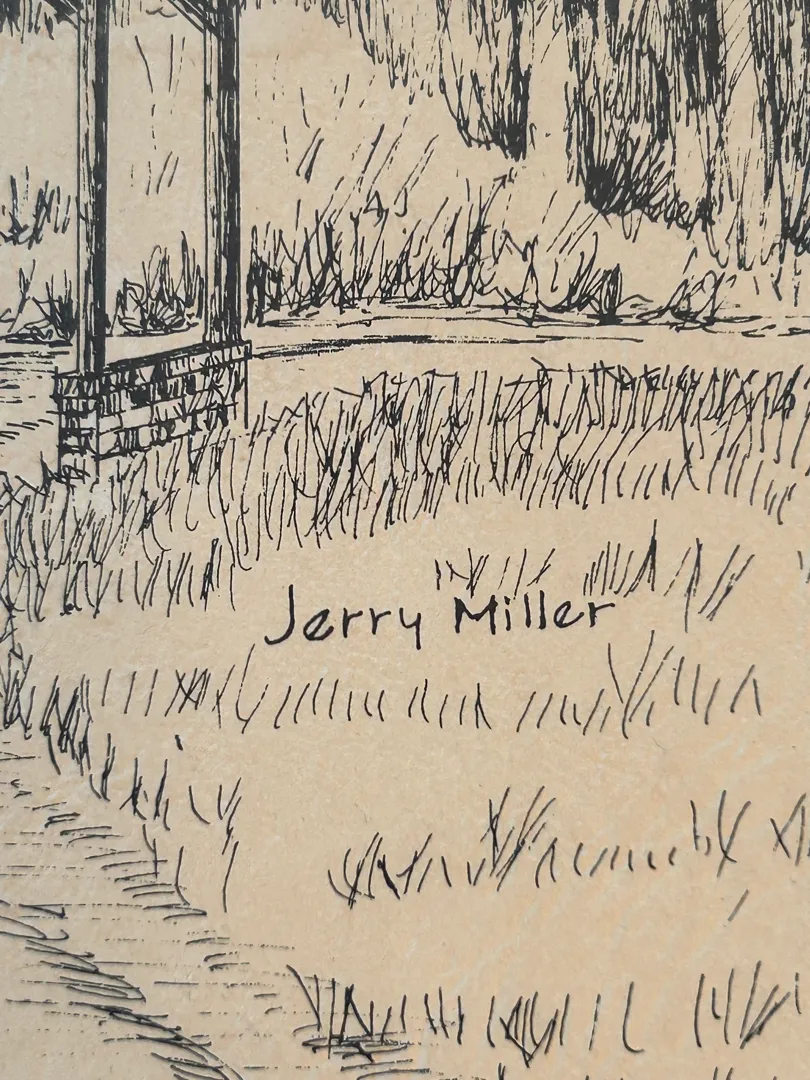 Jerry Miller